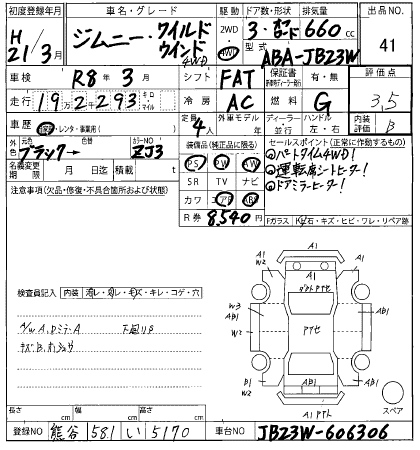 初度登録年月 車名・グレード 駆動 ドア数・形状 排気量 出品NO.
H 21/3月 ジムニー・ワイルドウインド 4WD 2WD 4WD 3・ 660cc 41
型式 ABA-JB23W
車検 R8年3月 シフト FAT 保証書 有・無 評価点 3.5
走行 192293 キロ マイル 冷房 AC 燃料 G
車歴 レンタ・事業用( ) 定員 4人 外車モデル年 ディーラー 並行 ハンドル 左・右 内装評価 B
外色 元色 ブラック→ 色替 カラーNO ZJ3
装備品(純正品に限る) セールスポイント(正常に作動するもの)
PS PW AW
①パートタイム4WD!
②運転席シートヒーター!
③ドアミラーヒーター!
名義変更期限 月 日迄 積載 t
SR TV ナビ
注意事項(欠品・修復・不具合箇所および状態)
カワ エアB
R券 8,540円
Fガラス 石・キズ・ヒビ・ワレ・リペア跡
検査員記入 内装 汚レ・スレ・キズ・キレ・コゲ・穴
A/W A、Dミラー A 下廻りS
キズB、
A1
A1 W2
A1
W3 AB1
W2
A1
A1 W2
AB1
AB1
A1
スペア
長さ cm 幅 cm 高さ cm
登録NO 熊谷 581 い 5170 車台NO JB23W-606306